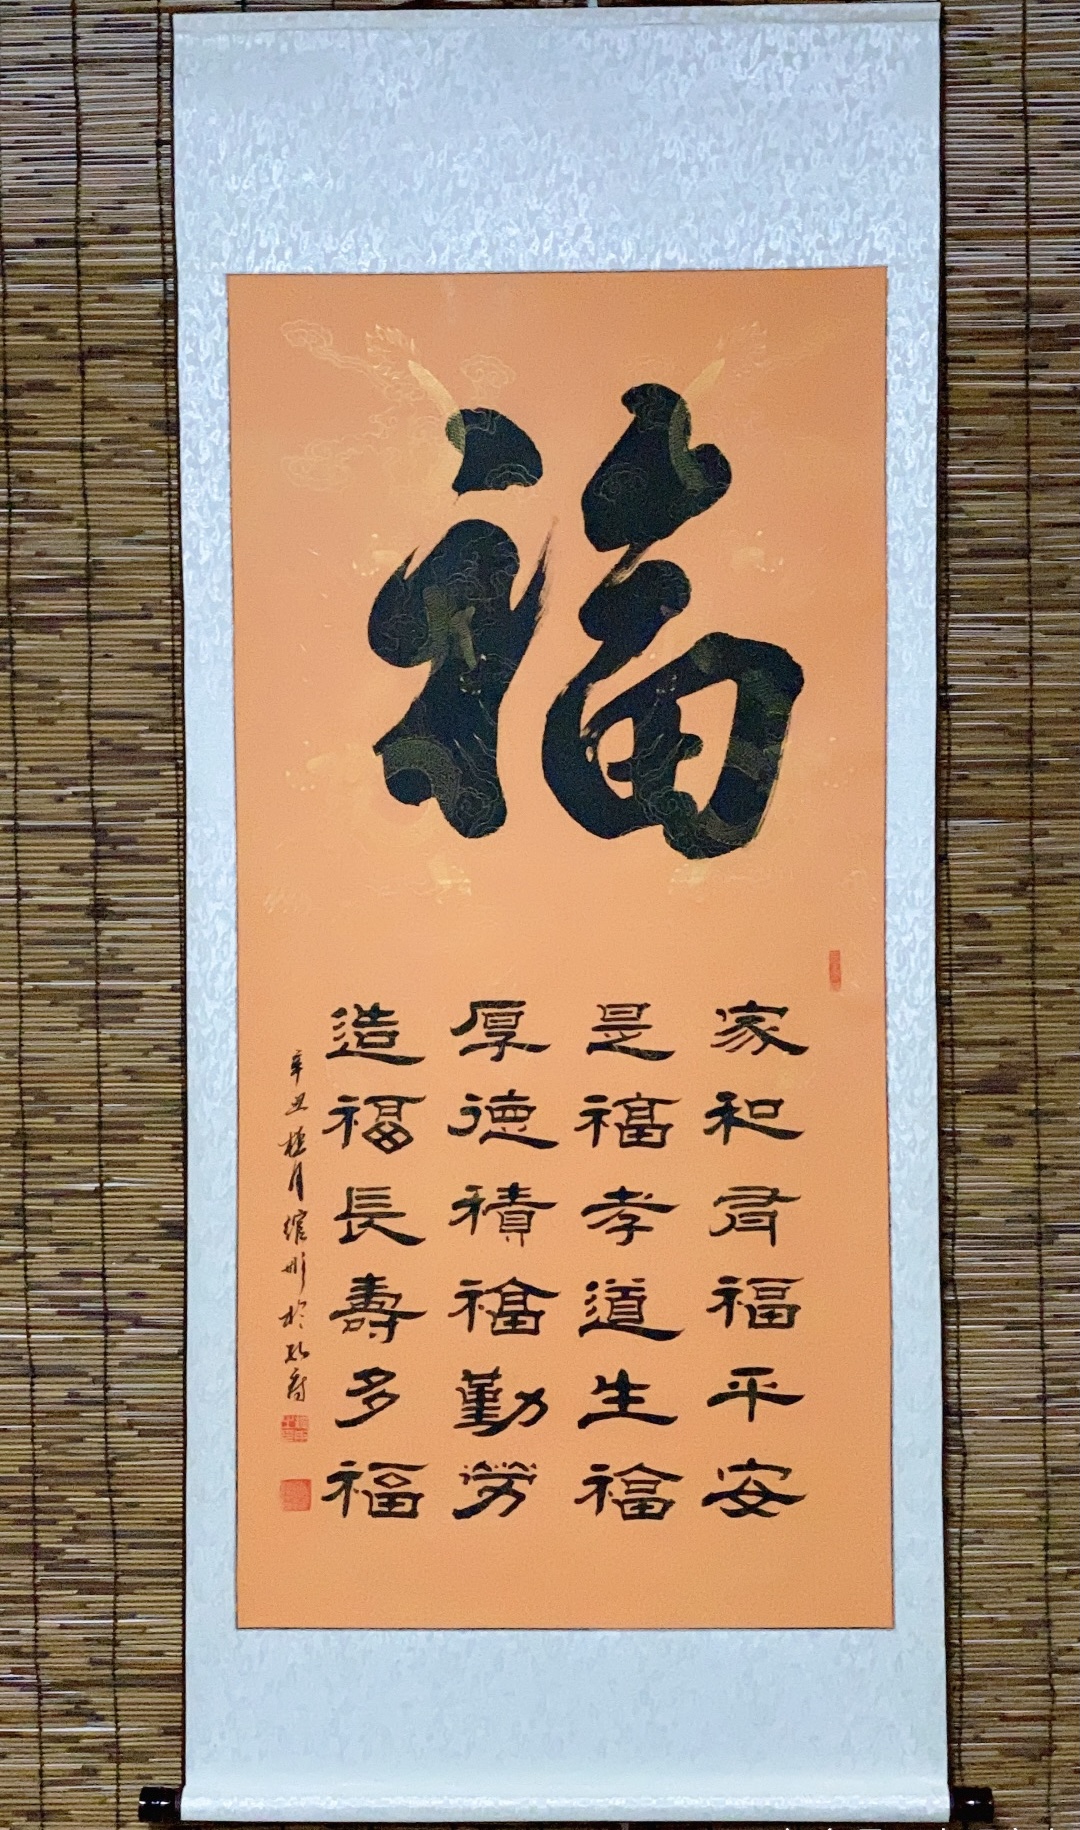 福
家和君福平安
是福孝道生福
厚德積福勤勞
造福長壽多福
辛丑桂月 於孔府